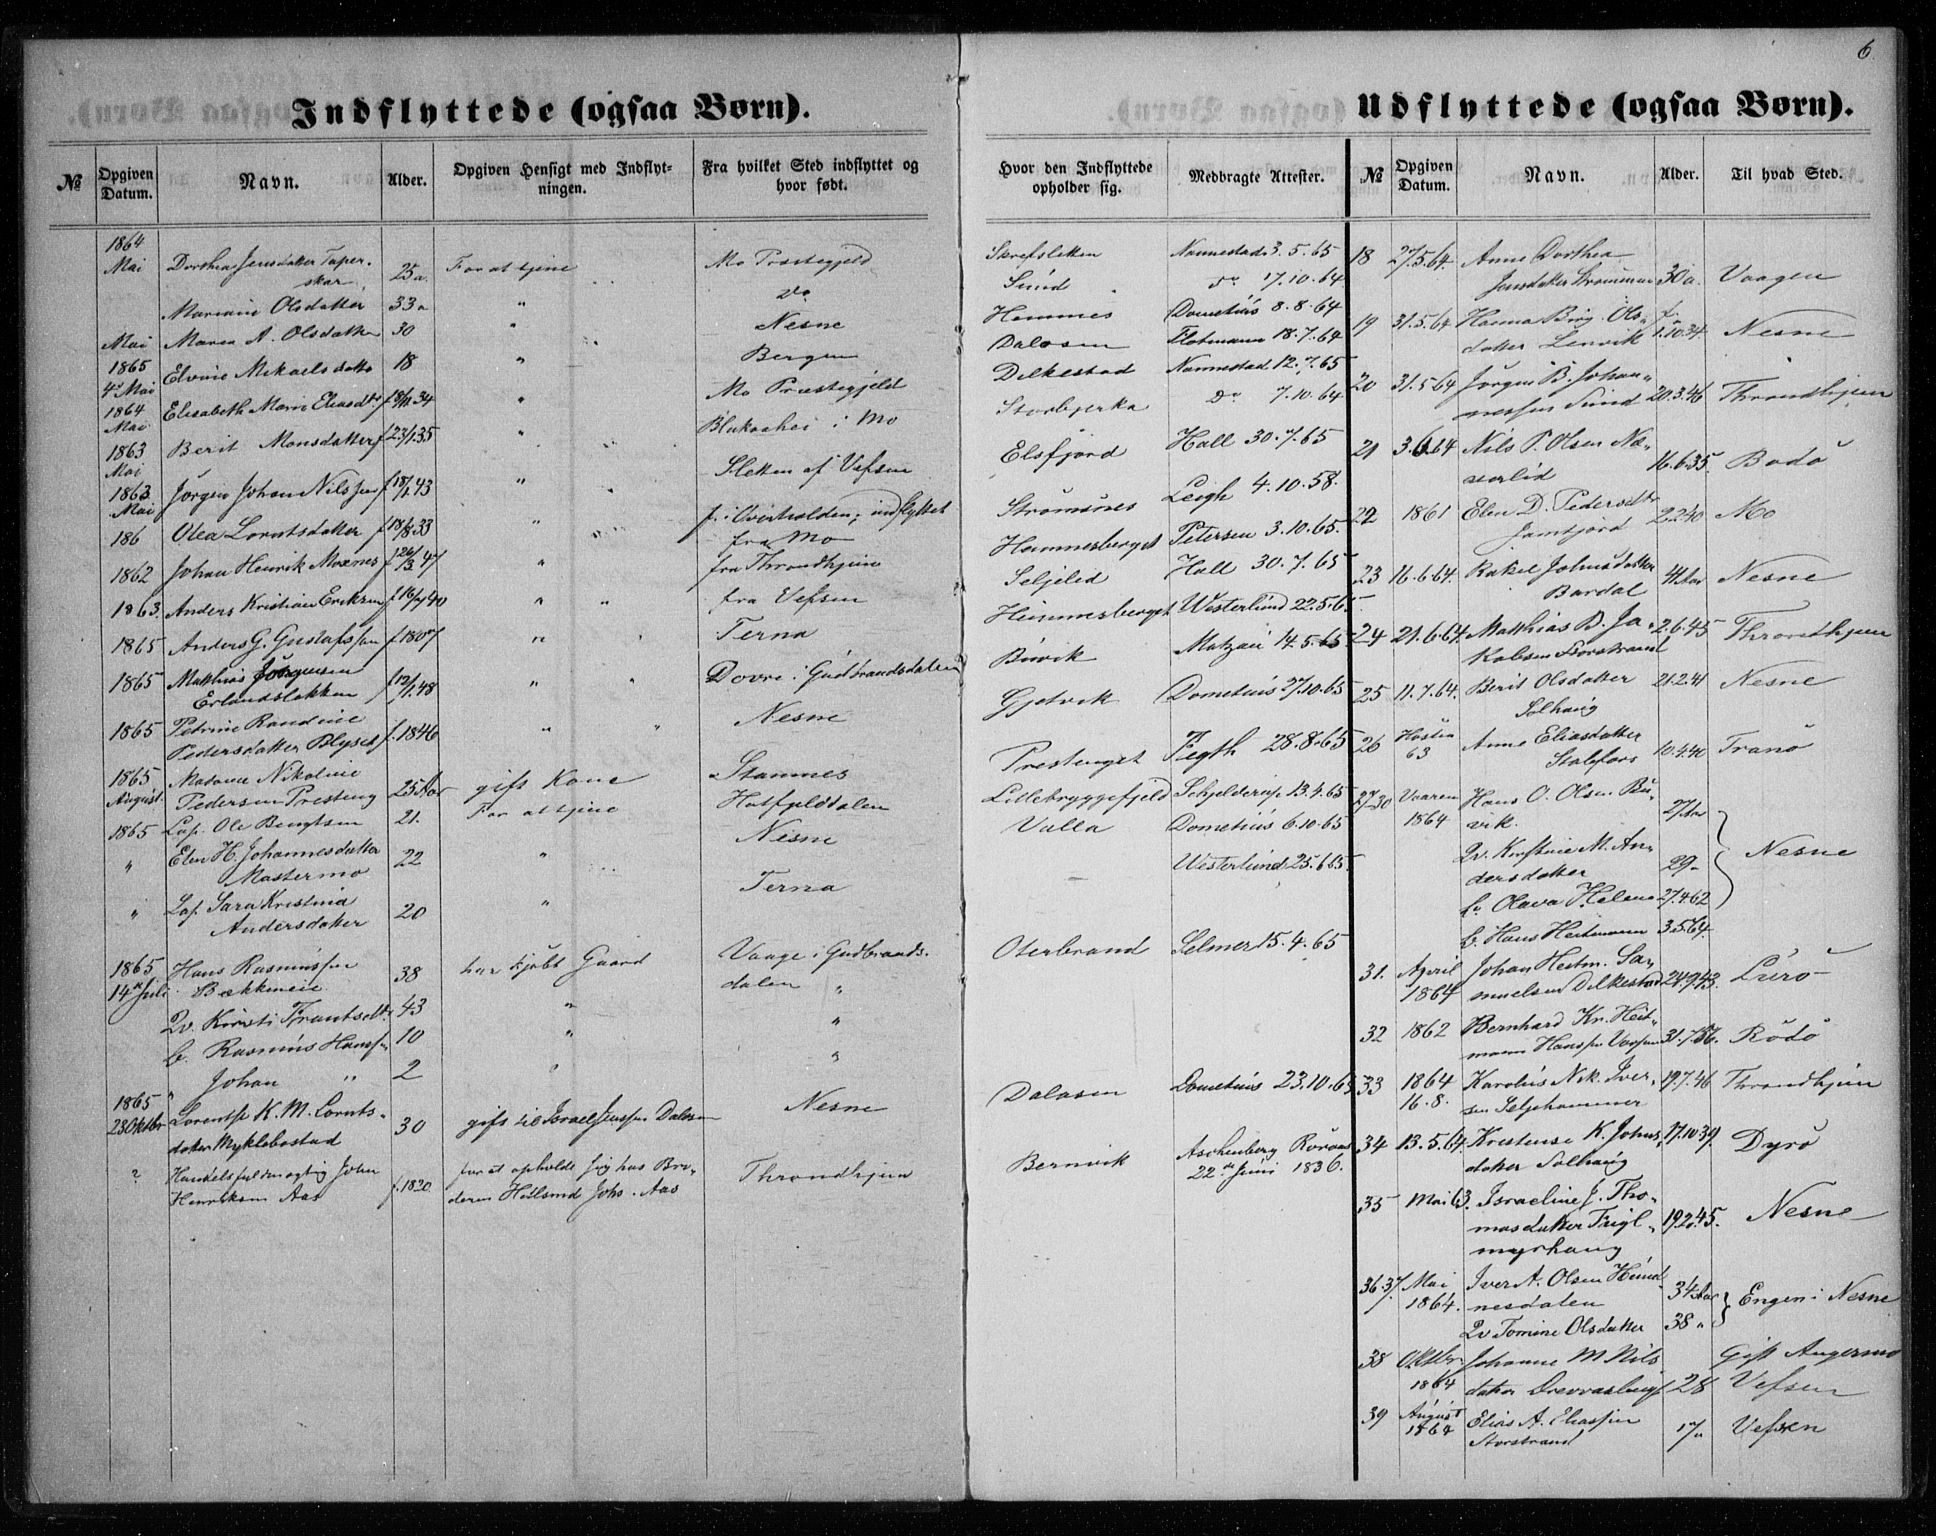 6
Indflyttede (ogsaa Børn).
№
Opgiven Datum.
Navn.
Alder.
Opgiven Hensigt med Indflytningen.
Fra hvilket Sted indflyttet og hvor født.
1864
Mai Dorthea Jensdatter Taper- 25 a. For at tjene Mo Præstegjeld
skar
Mariane Olsdatter 33 a " Do
Mai Maren A. Olsdatter 30 " Nesne
1865
4de Mai Elvine Mikaelsdatter 18 " Bergen
1864
Mai Elisabeth Marie Eliasdtr " Mo Præstegjeld
1863
Mai Berit Monsdatter f 23/1 35 " Blakaahei i Mo
1863
Mai Jørgen Johan Nilssen f 18/1 43 " Sletten af Vefsen
186 Olea Lorntsdatter f 18/8 33 " f. i Overhalden; indflyttet
fra Mo
1862 Johan Henrik Moxnes f 26/3 47 " fra Throndhjem
1863. Anders Kristian Eriksen f 16/4 40 " " fra Vefsen
1865 Anders G. Gustafssen f 1807 " Terna
1865 Matthias Jørgensen
Erlandsløkken f 12/1 48 " " Dovre i Gudbrandsdalen
1865 Petrine Randine
Pedersdatter Blyset f. 1846 " " Nesne
1865
August Madame Nikoline
Pedersen Presteng 25 Aar gift Kone Stamnes
1865 Lap. Ole Bengtsen 21. For at tjene Hatfjelddalen
" Elen H. Johannesdatter
Mastermo 22 " Nesne
" Lap. Sara Kristina
Andersdatter 20 " Terna
1865
14de Juli Hans Rasmussen
Bækkeneie 38 har kjøbt Gaard Vaage i Gudbrands-
dalen "
Qv. Kirsti Frantsdtr. 43 " "
b. Rasmus Hanssen 10 " "
" Johan " 2 "
1865
23 Oktbr Lorentse K. M. Lornts-
datter Myklebostad 30 gift til Israel Jenssen Dalosen Nesne
? Handelsfuldmægtig Johan
Henriksen Aas f. 1820 for at opholde sig hos Bro-
deren Johs. Aas Throndhjem
Udflyttede (ogsaa Børn).
Hvor den Indflyttede opholder sig.
Medbragte Attester.
№
Opgiven Datum.
Navn.
Alder.
Til hvad Sted.
Skrefsletten Nannestad 3.5.65
Sund Do 17.10.64
Hemnes Dometius 8.8.64
Dalosen Flotmann 18.7.64
Dilkestad Nannestad 12.7.65
Storbjerka Do 7.10.64
Elsfjord Hall 30.7.65
Strømsnes Leigh 4.10.58.
Hemnesberget Petersen 3.10.65.
Seljelid Hall 30.7.65
Hemnesberget Westerlund 22.5.65.
Buvik Matzau 14.5.65
Gjetvik Dometius 27.10.65
Prestenget Fegth 28.8.65
Lillebryggefjeld Schjelderup 13.4.65
Valla Dometius 6.10.65
Westerlund 25.6.65.
Oterbrand Selmer 15.4.65
Dalosen Dometius 23.10.65
Bernvik Aschenberg Røraas
22de Juni 1836.
18 27.5.64. Anne Dorthea
Jensdatter Strømmen 30 a. Vaagen
19 31.5.64 Hanna Birg. Ols-
datter Lenvik f. 1.10.34. Nesne
20 31.5.64 Jørgen B. Johan-
nessen Sund 20.3.46 Throndhjem
21 3.6.64 Nils P. Olsen Næ-
verlid 16.6.35. Bodø
22 1861 Elen D. Pedersdtr
Jamtjord 2.2.40 Mo
23 16.6.64. Rakel Johnsdatter
Bardal 41 Aar Nesne
24 21.6.64. Matthias B. Ja-
kobsen Storstrand 2.6.45 Throndhjem
25 11.7.64. Berit Olsdatter
Solhaug 21.2.41 Nesne
26 Høsten
63 Anne Eliasdatter
Stolefors 10.4.40 Tranø
27-30 Vaaren
1864 Hans O. Olsen Bu-
vik. 27 Aar
Qv. Kirstine M. An-
dersdatter 29- Nesne
b. Olava Helene 27.4.62
b. Hans Heitmann 3.5.64.
31. April
1864 Johan Heitm. Sa-
muelsen Dilkestad 24.9.43. Lurø
32 1862 Bernhard Kr. Heit-
mann Hanssen 31.7.36. Rødø
33 1864
16.8. Karolus Nik. Iver-
sen Seljehammer 19.7.46 Throndhjem
34 13.5.64. Kristense K. Johns-
datter Solhaug 17.10.39 Dyrø
35 Mai 63. Israeline J. Tho-
masdatter Fugl-
myrhaug 19.2.45. Nesne
36.37 Mai
1864. Iver A. Olsen Hund-
nesdalen 34 Aar Engen i Nesne
Qv Tomine Olsdatter 38 "
38 Oktbr.
1864 Johanne M Nils
datter 28 Gift Angermo
Vefsen
39 August
1864 Elias A. Eliassen
Storstrand 17 " Vefsen